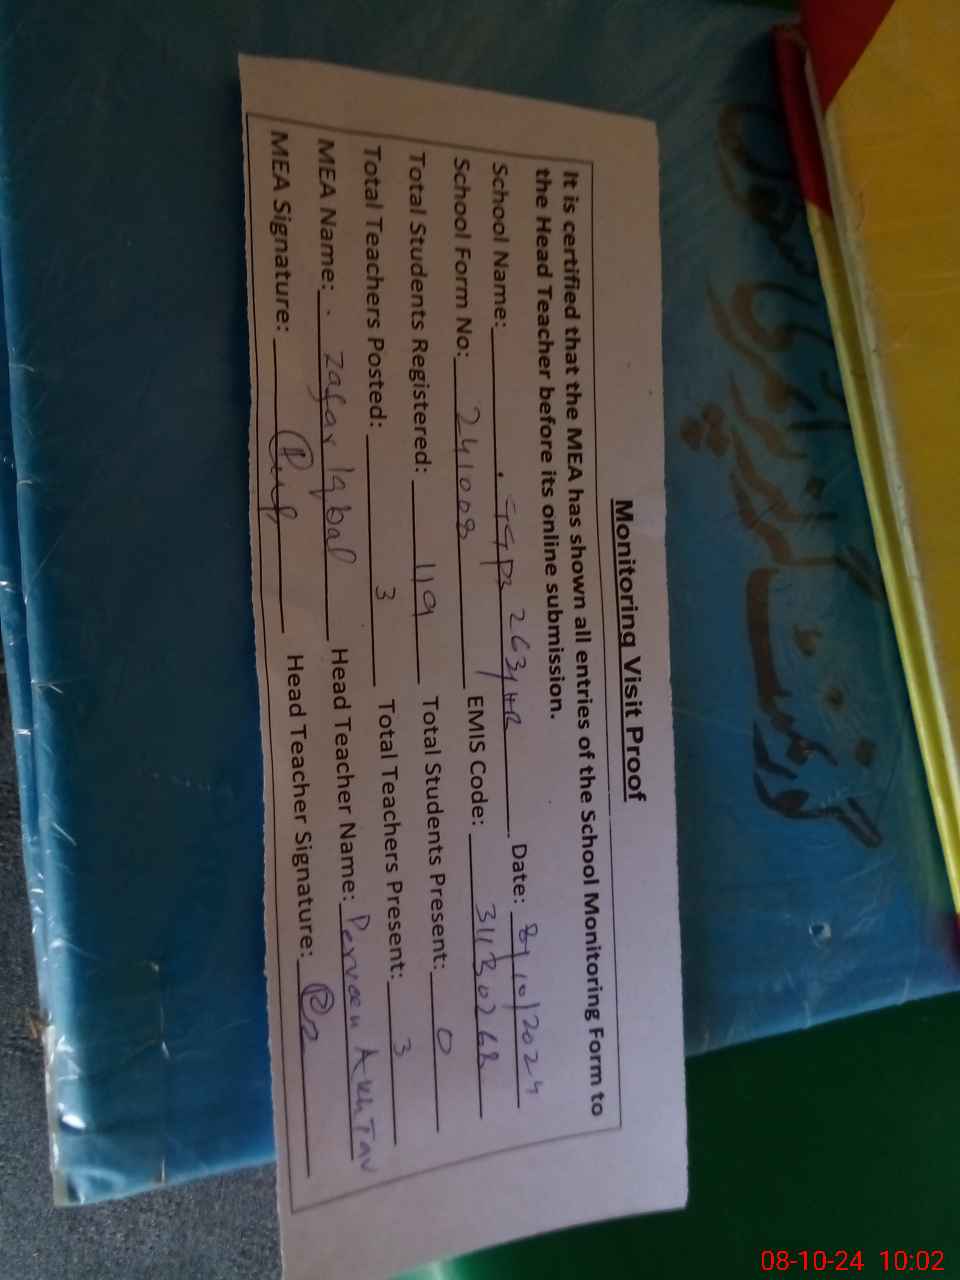 Monitoring Visit Proof
It is certified that the MEA has shown all entries of the School Monitoring Form to
the Head Teacher before its online submission.
School Name: 263/HR Date: 8/10/2024
School Form No: 241008 EMIS Code: 31130268
Total Students Registered: 119 Total Students Present: 0
Total Teachers Posted: 3 Total Teachers Present: 3
MEA Name: Zafar Iqbal Head Teacher Name: Perveen Akhtar
MEA Signature: Head Teacher Signature:
گورنمنٹ
08-10-24 10:02